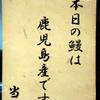 本日の鰻は
鹿児島産です
当